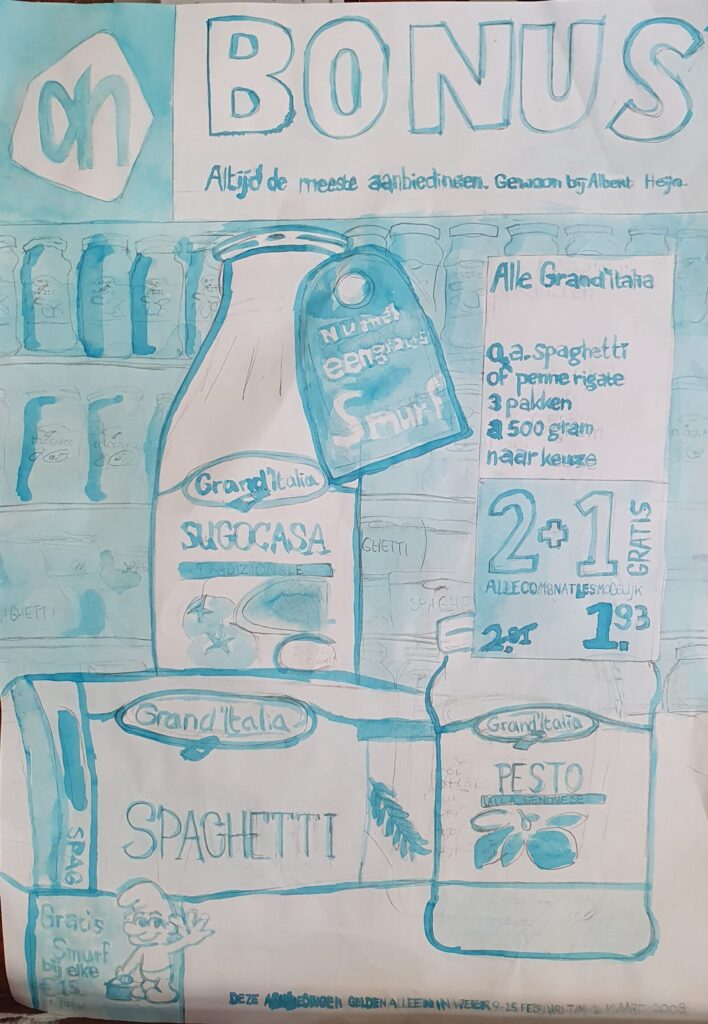 ah
BONUS
Altijd de meeste aanbiedingen. Gewoon bij Albert Heijn.
Nu met
een gratis
Smurf
Alle Grand'Italia
q.a. spaghetti
of penne rigate
3 pakken
a 500 gram
naar keuze
2+1
GRATIS
ALLE COMBNATIES MOGELIJK
1.93
Grand'Italia
SUGOCASA
TRADIZIONALE
GHETTI
SPAGHE
SPAG
PAGHETTI
Grand'Italia
SPAGHETTI
SPAG
Grand'Italia
PESTO
ALLA GENOVESE
Gratis
Smurf
bij elke
€15
DEZE GELDEN ALLEEN IN WEEK 9-25 FEBRUARI T/M 2 MAART 2008